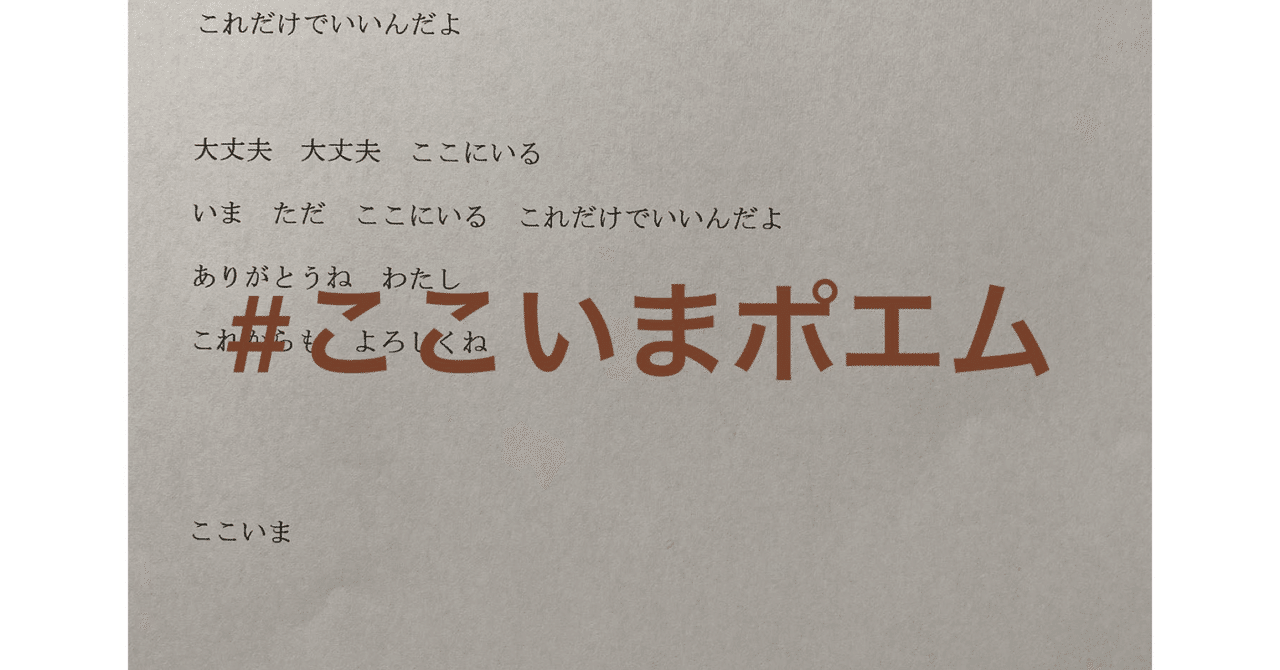 これだけでいいんだよ
大丈夫　大丈夫　ここにいる
いま　ただ　ここにいる　これだけでいいんだよ
ありがとうね　わたし
これからも　よろしくね
#ここいまポエム
ここいま